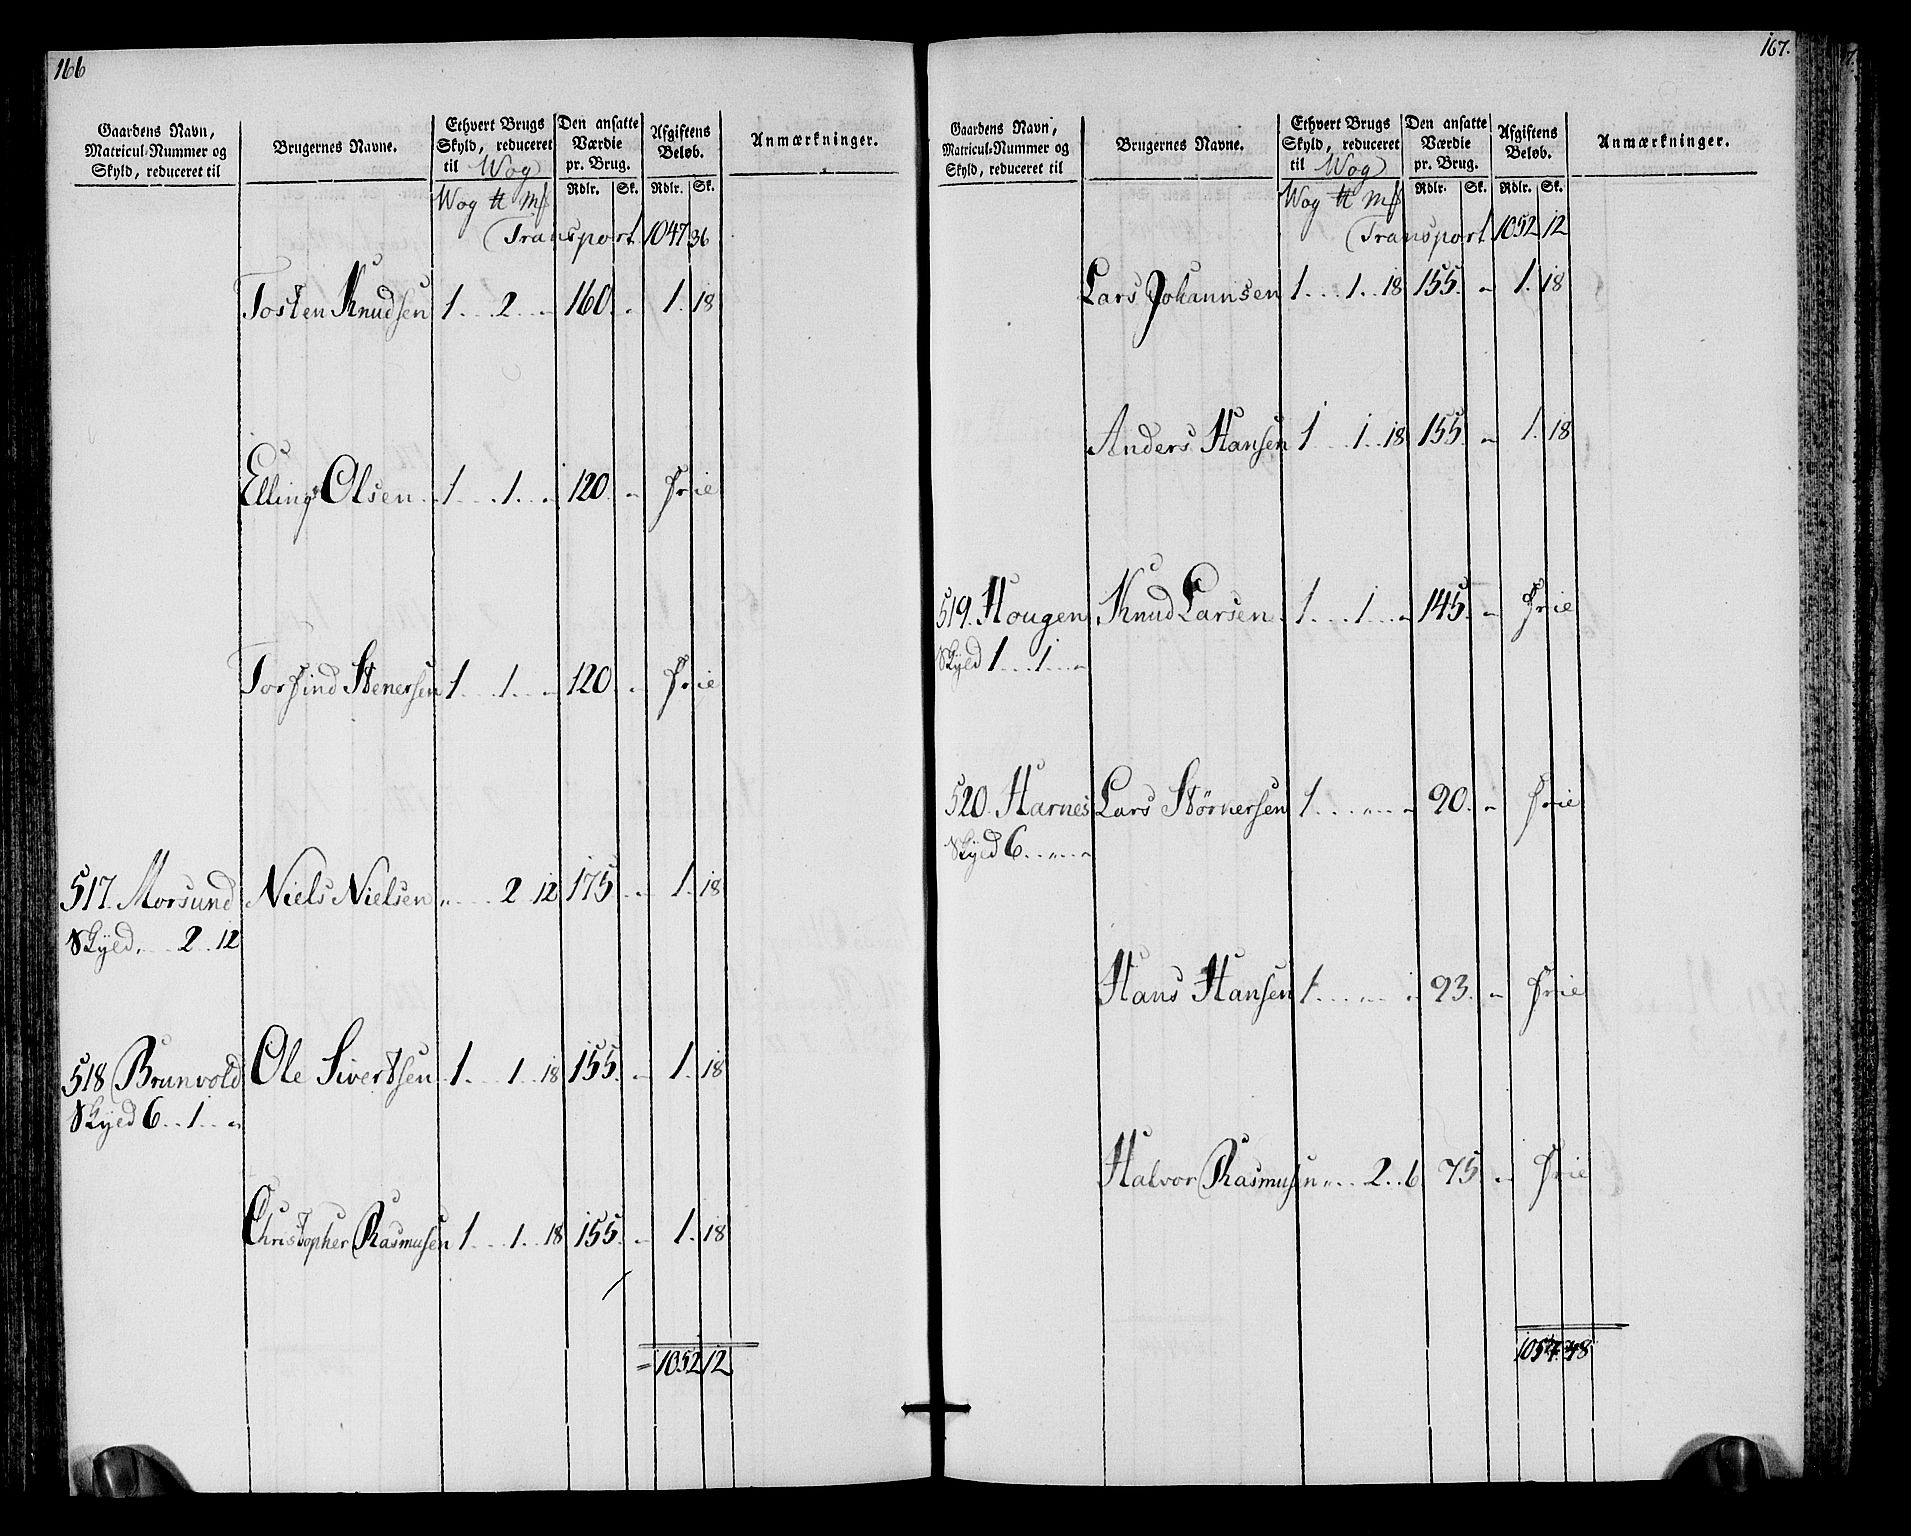 166
Gaardens Navn, Matricul-Nummer og Skyld, reduceret til | Brugernes Navne. | Ethvert Brugs Skyld, reduceret til Wog | Den ansatte Værdie pr. Brug. | Afgiftens Beløb. | Anmærkninger.
Wog ℔ Mk | Rdlr. | Sk. | Rdlr. | Sk.
Transport 1047 36
Tosten Knudsen 1 . . . 2 . . „ 160. „ 1. 18
Elling Olsen 1 . . . 1 . . „ 120. „ Frie
Torfind Stenersen 1 . . . 1 . . „ 120. „ Frie
517. Morsund Niels Nielsen „ . . . 2 12 175. „ 1. 18
Skyld „ . . 2 . . 12
518 Brunvold Ole Sivertsen 1 . . . 1 . . 18 155. „ 1. 18
Skyld 6 . . 1 . . „
Christopher Rasmusen 1 . . . 1 . . 18 155. „ 1. 18
= 1052 12
167.
Gaardens Navn, Matricul-Nummer og Skyld, reduceret til | Brugernes Navne. | Ethvert Brugs Skyld, reduceret til Wog | Den ansatte Værdie pr. Brug. | Afgiftens Beløb. | Anmærkninger.
Wog ℔ Mk | Rdlr. | Sk. | Rdlr. | Sk.
Transport 1052 12
Lars Johannsen 1 . . . 1 . . 18 155. „ 1. 18
Anders Hansen 1 . . . 1 . . 18 155. „ 1. 18
519. Hougen Knud Larsen 1 . . . 1 . . „ 145. „ Frie
Skyld 1 . . . 1 . . „
520. Harnes Lars Størnersen 1 . . . „ . . „ 90. „ Frie
Skyld 6 . . „ . . „
Hans Hansen 1 . . . „ . . „ 93. „ Frie
Halvor Rasmusen „ . . 2 . . 6 75. „ Frie
1054 48